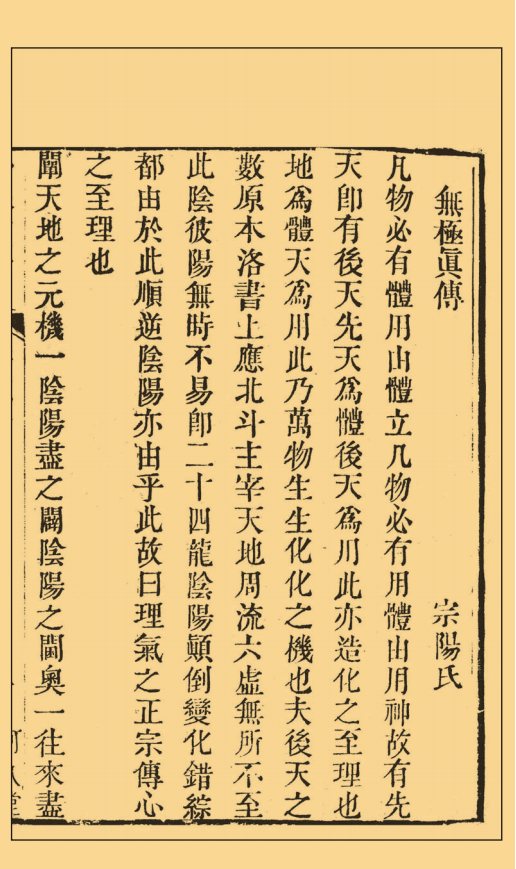 無極眞傳 宗陽氏
凡物必有體用由體立凡物必有用體由用神故有先
天卽有後天先天爲體後天爲用此亦造化之至理也
地爲體天爲用此乃萬物生生化化之機也夫後天之
數原本洛書上應北斗主宰天地周流六虛無所不至
此陰彼陽無時不易卽二十四龍陰陽顚倒變化錯綜
都由於此順逆陰陽亦由乎此故曰理氣之正宗傳心
之至理也
闡天地之元機一陰陽盡之闢陰陽之閫奧一往來盡